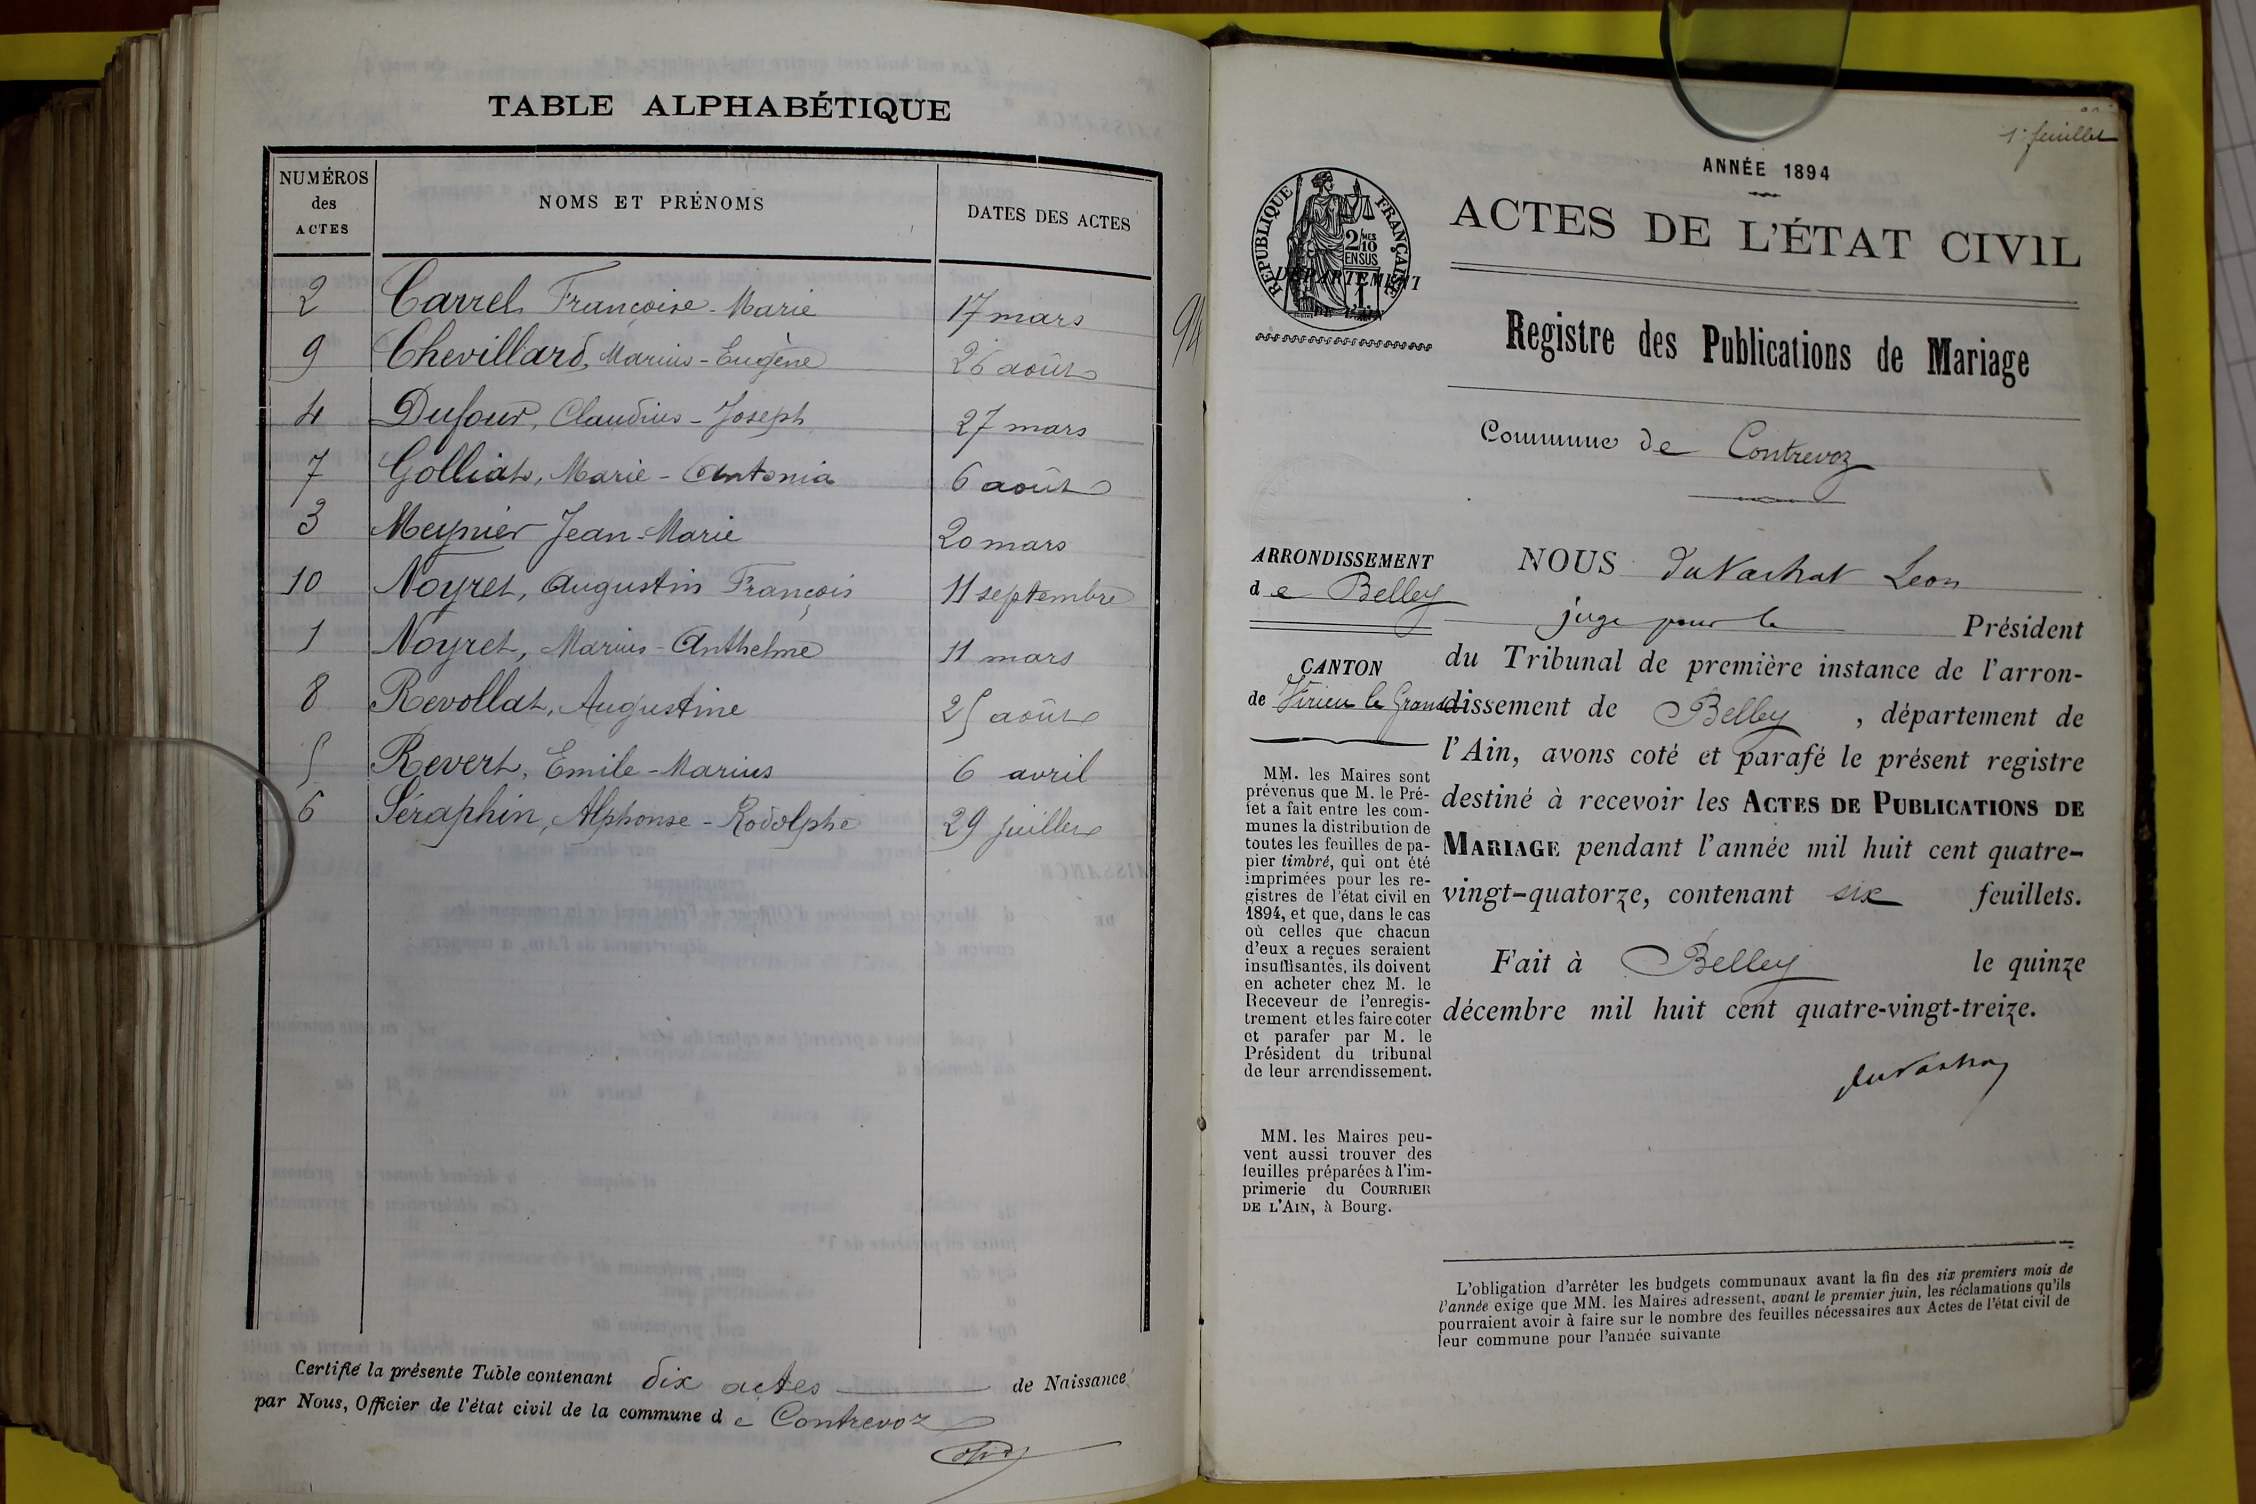 TABLE ALPHABÉTIQUE
NUMÉROS des ACTES NOMS ET PRÉNOMS DATES DES ACTES
2 Carrel Françoise-Marie 17 mars
9 Chevillard, Marius-Eugène 26 août
4 Dufour, Claudius-Joseph 27 mars
7 Golliat, Marie-Antonia 6 août
3 Meynier Jean-Marie 20 mars
10 Noyret, Augustin François 11 septembre
1 Noyret, Marius-Anthelme 11 mars
8 Revollat, Augustine 25 août
5 Revert, Emile-Marius 6 avril
6 Séraphin, Alphonse-Rodolphe 29 juillet
Certifié la présente Table contenant dix actes de Naissance
par Nous, Officier de l'état civil de la commune de Contrevoz
94
1er feuillet
ANNÉE 1894
RÉPUBLIQUE FRANÇAISE
2/10 MES
EN SUS
DÉPARTEMENT
DE L'AIN
ACTES DE L'ÉTAT CIVIL
Registre des Publications de Mariage
Commune de Contrevoz
ARRONDISSEMENT
de Belley
CANTON
de Virieu le Grand
MM. les Maires sont
prévenus que M. le Pré-
fet a fait entre les com-
munes la distribution de
toutes les feuilles de pa-
pier timbré, qui ont été
imprimées pour les re-
gistres de l'état civil en
1894, et que, dans le cas
où celles que chacun
d'eux a reçues seraient
insuffisantes, ils doivent
en acheter chez M. le
Receveur de l'enregis-
trement et les faire coter
et parafer par M. le
Président du tribunal
de leur arrondissement.
MM. les Maires peu-
vent aussi trouver des
feuilles préparées à l'im-
primerie du COURRIER
DE L'AIN, à Bourg.
NOUS Leon
juge pour le Président
du Tribunal de première instance de l'arron-
dissement de Belley, département de
l'Ain, avons coté et parafé le présent registre
destiné à recevoir les ACTES DE PUBLICATIONS DE
MARIAGE pendant l'année mil huit cent quatre-
vingt-quatorze, contenant six feuillets.
Fait à Belley le quinze
décembre mil huit cent quatre-vingt-treize.
L'obligation d'arrêter les budgets communaux avant la fin des six premiers mois de
l'année exige que MM. les Maires adressent, avant le premier juin, les réclamations qu'ils
pourraient avoir à faire sur le nombre des feuilles nécessaires aux Actes de l'état civil de
leur commune pour l'année suivante